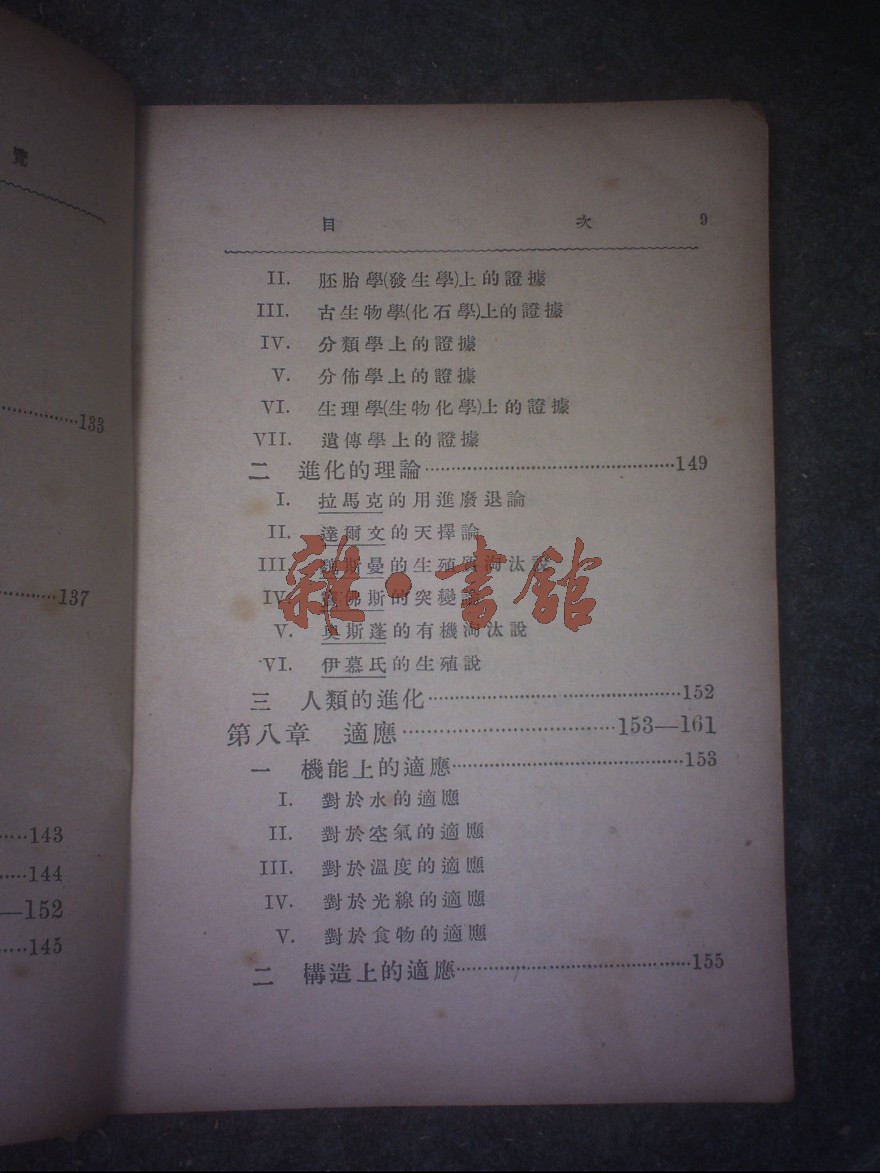 覽
133
137
143
144
—152
145
目 次 9
II. 胚胎學(發生學)上的證據
III. 古生物學(化石學)上的證據
IV. 分類學上的證據
V. 分佈學上的證據
VI. 生理學(生物化學)上的證據
VII. 遺傳學上的證據
二 進化的理論 149
I. 拉馬克的用進廢退論
II. 達爾文的天擇論
III. 斯曼的生殖質淘汰說
IV. 佛斯的突變論
V. 奧斯蓬的有機淘汰說
VI. 伊慕氏的生殖說
三 人類的進化 152
第八章 適應 153—161
一 機能上的適應 153
I. 對於水的適應
II. 對於空氣的適應
III. 對於溫度的適應
IV. 對於光線的適應
V. 對於食物的適應
二 構造上的適應 155
雜·書館